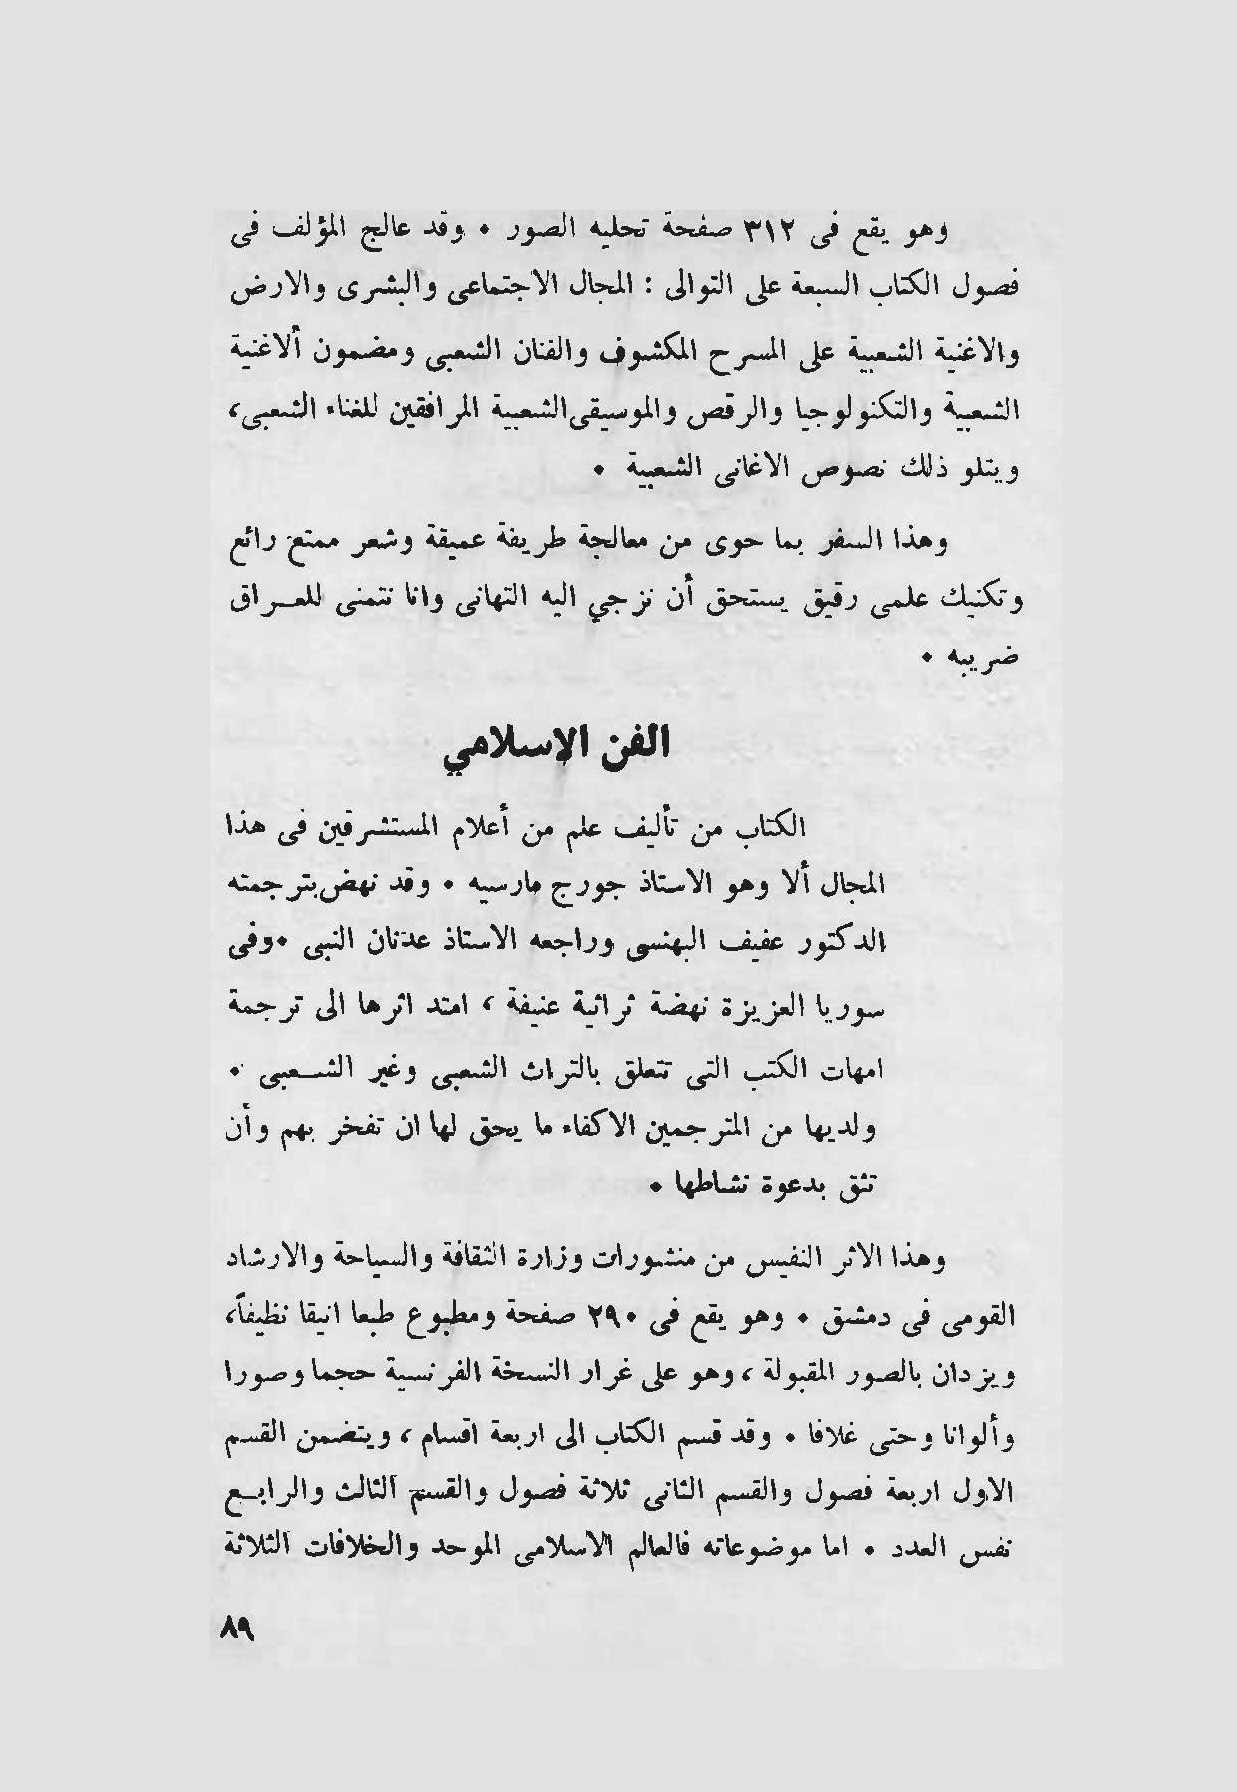 وهو يقع فى ٣١٢ صفحة تحليه الصور ٠ وقد عالج المؤلف فى
فصول الكتاب السبعة على التوالى : المجال الاجتماعى والبشرى والارض
والاغنية الشعبية على المسرح المكشوف والفنان الشعبى ومضمون ألاغنية
الشعبية والتكنولوجيا والرقص والموسيقى الشعبية المرافقين للغناء الشعبى،
ويتلو ذلك نصوص الاغانى الشعبية ٠
وهذا السفر بما حوى من معالجة طريفة عميقة وشعر ممتع رائع
وتكنيك علمى رقيق يستحق أن نزجي اليه التهانى وانا نتمنى للعراق
ضريبه ٠
الفن الإسلامي
الكتاب من تأليف علم من أعلام المستشرقين فى هذا
المجال ألا وهو الاستاذ جورج مارسيه ٠ وقد نهض بترجمته
الدكتور عفيف البهنسى وراجعه الاستاذ عدنان النبى ٠ وفى
سوريا العزيزة نهضة تراثية عنيفة ، امتد اثرها الى ترجمة
امهات الكتب التى تتعلق بالتراث الشعبى وغير الشعبى ٠
ولديها من المترجمين الاكفاء ما يحق لها ان تفخر بهم وأن
تثق بدعوة نشاطها ٠
وهذا الاثر النفيس من منشورات وزارة الثقافة والسياحة والارشاد
القومى فى دمشق ٠ وهو يقع فى ٢٩٠ صفحة ومطبوع طبعا انيقا نظيفاً،
ويزدان بالصور المقبولة ، وهو على غرار النسخة الفرنسية حجما وصورا
وألوانا وحتى غلافا ٠ وقد قسم الكتاب الى اربعة اقسام ، ويتضمن القسم
الاول اربعة فصول والقسم الثانى ثلاثة فصول والقسم الثالث والرابع
نفس العدد ٠ اما موضوعاته فالعالم الاسلامى الموحد والخلافات الثلاثة
٨٩